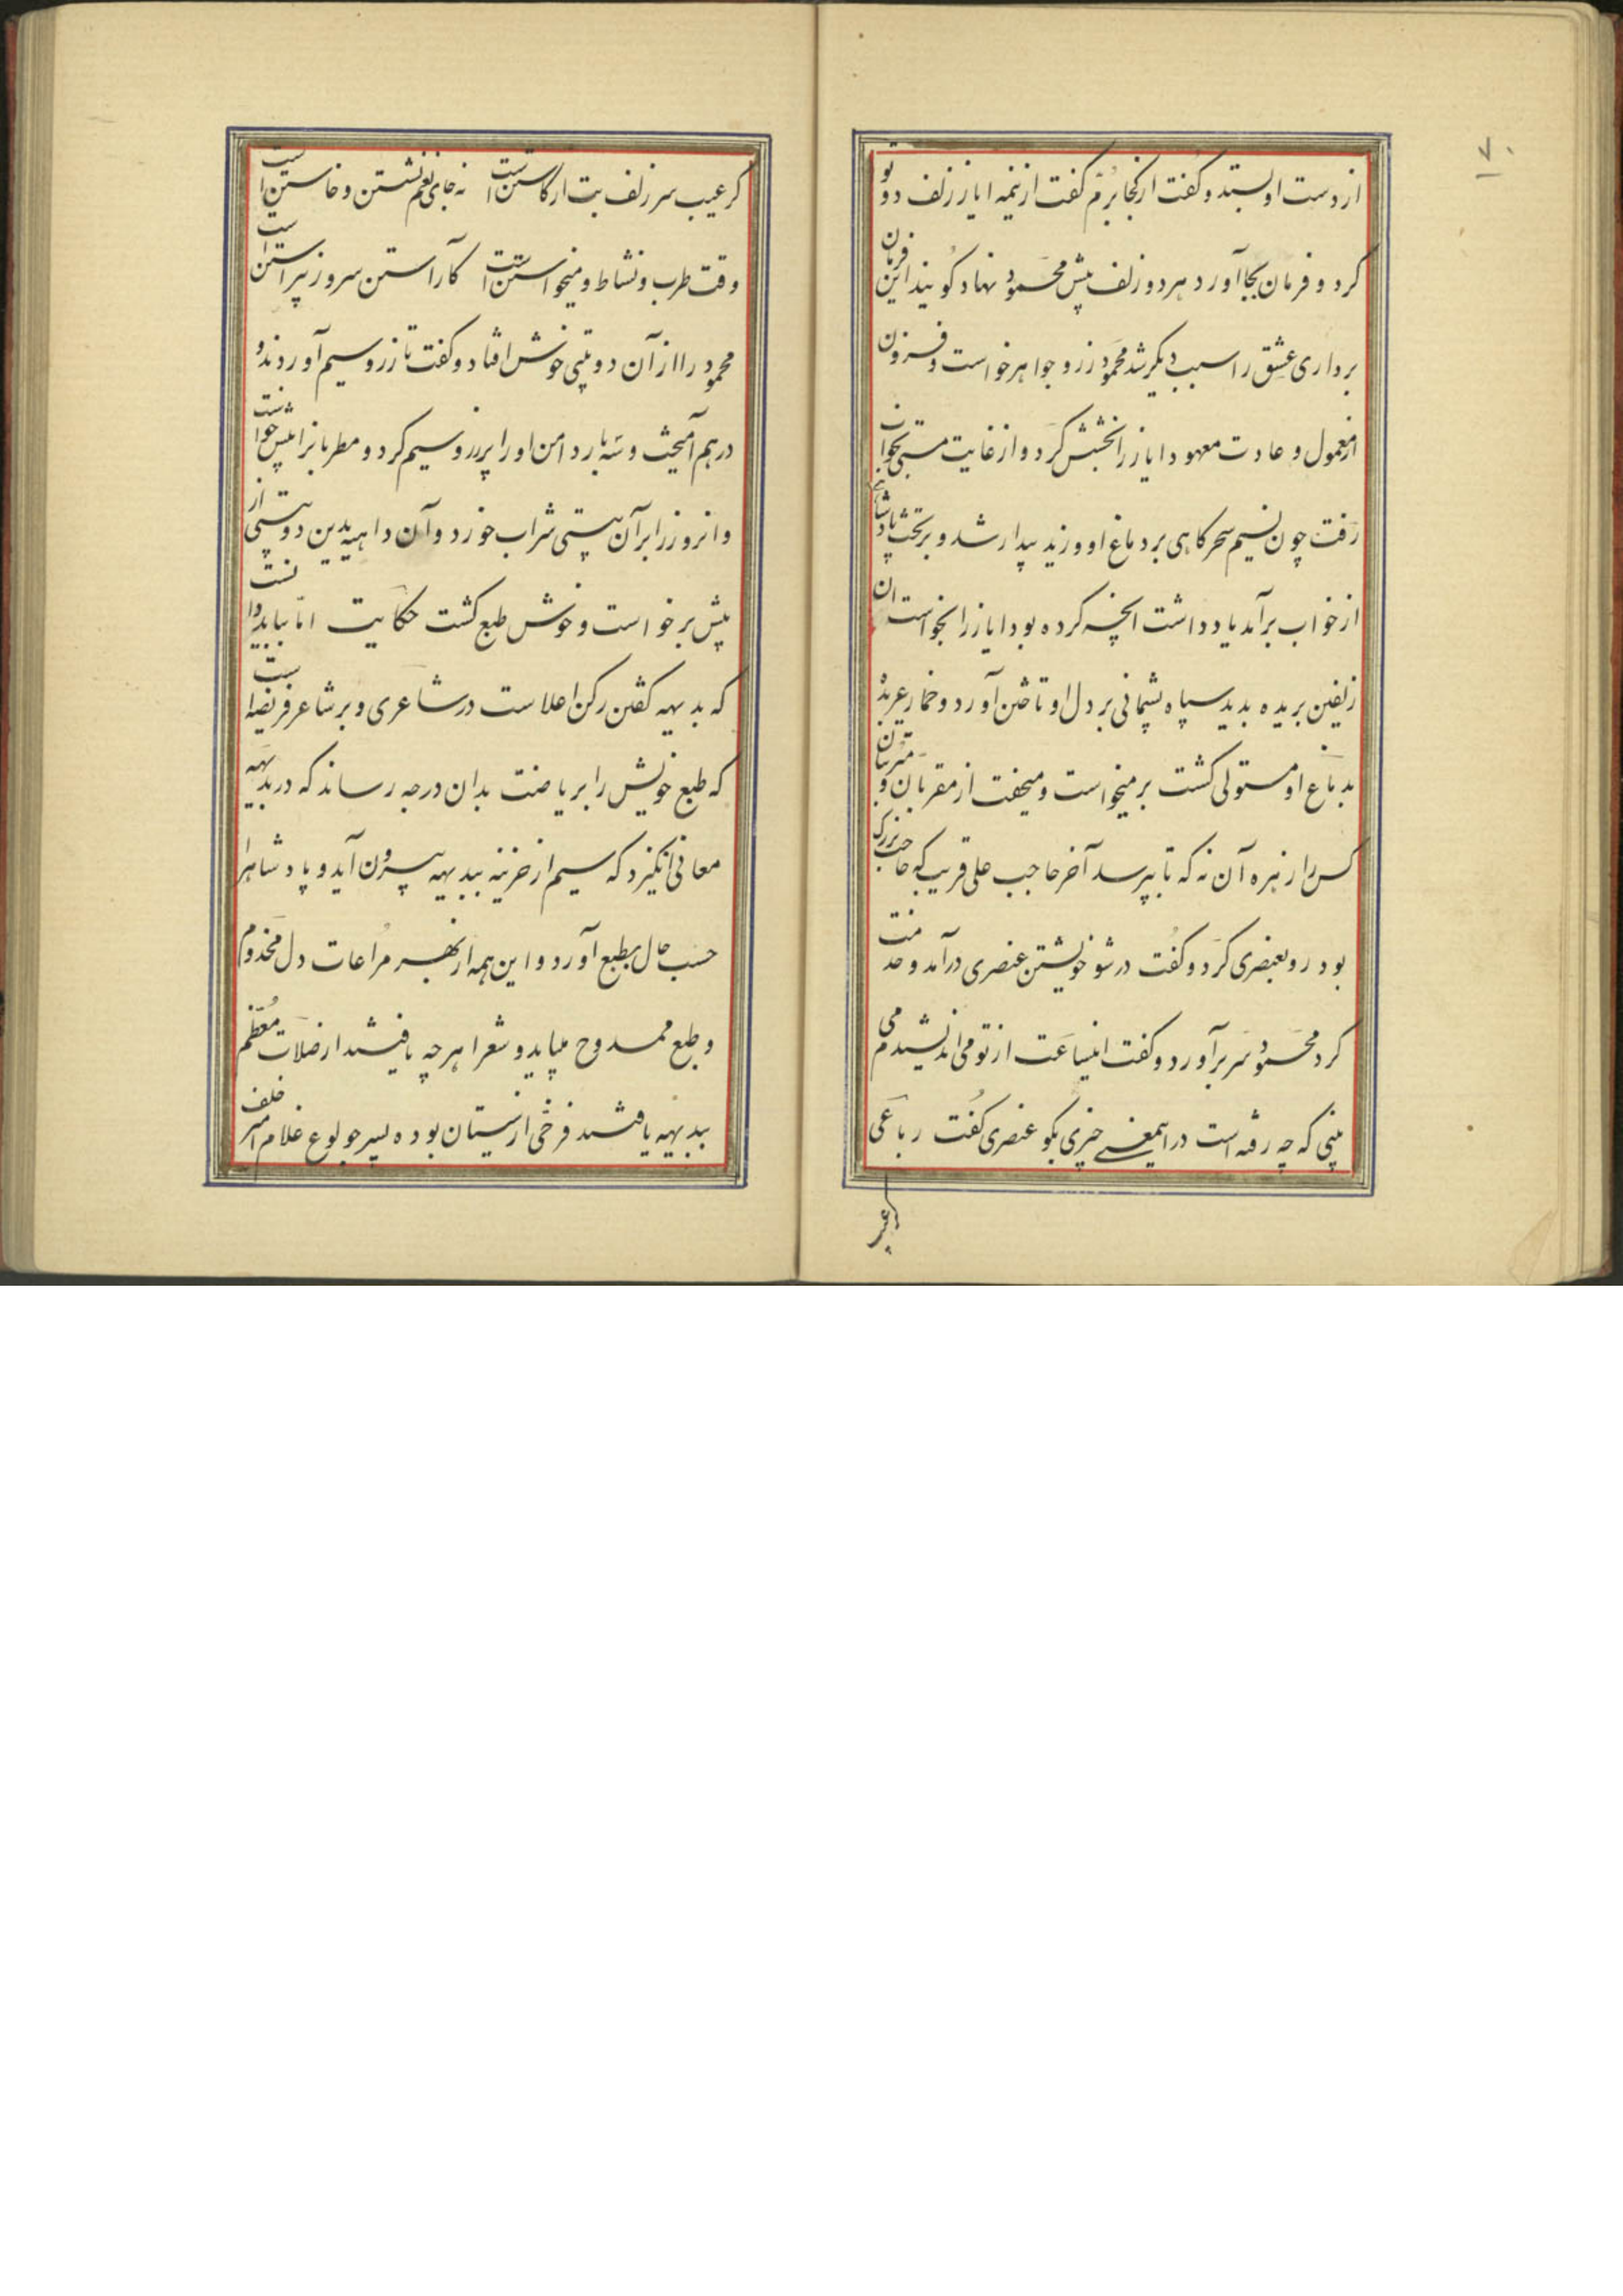 ۷۰
از دست او بستد و گفت از کجا برم گفت از نیمه ایاز زلف دو تو
کرد و فرمان بجا آورد هر دو زلف پیش محمود نهاد گویند این فرمان
برداری عشق را سبب دیگر شد محمود زر و جواهر خواست و فزون
از معمول و عادت معهود ایاز را بخشش کرد و از غایت مستی بخواب
رفت چون نسیم سحرگاهی بر دماغ او وزید بیدار شد و بر تخت پادشاهی
از خواب برآمد یاد داشت آنچه کرده بود ایاز را بخواست آن
زلفین بریده بدید سپاه پشیمانی بر دل او تاختن آورد و خمار عربده
بدماغ او مستولی گشت برمیخواست و میخفت از مقربان و مترتبان
کس را زهره آن نه که تا بپرسد آخر حاجب علی قریب که حاجب بزرگ
بود رو بعنصری کرد و گفت در شو خویشتن عنصری درآمد و خدمت
کرد محمود سر برآورد و گفت اینساعت از تو می اندیشیدم می
بینی که چه رفته است در اینمعنی چیزی بگو عنصری گفت رباعی
گر عیب
گر عیب سر زلف بت از کاستن است نه جای بغم نشستن و خاستن است
وقت طرب و نشاط و می خواستن است کاراستن سرو ز پیراستن است
محمود را از آن دوبیتی خوش افتاد و گفت تا زر و سیم آوردند و
درهم آمیخت و سه بار دامن او را پر زر و سیم کرد و مطربانرا پیش خواست
و انروز را بر آن بیتی شراب خورد و آن داهیه بدین دوبیتی از
پیش برخواست و خوش طبع گشت حکایت اما بباید دانست
که بدیهه گفتن رکن اعلاست در شاعری و بر شاعر فریضه است
که طبع خویش را بریاضت بدان درجه رساند که در بدیهه
معانی انگیزد که سیم از خزینه ببدیهه بیرون آید و پادشاه را
حسب حال بطبع آورد و این همه از بهر مراعات دل مخدوم
و طبع ممدوح میباید و شعرا هرچه یافتند از صلات معظم
ببدیهه یافتند فرخی از سیستان بوده پسر جولوغ غلام امیر خلف